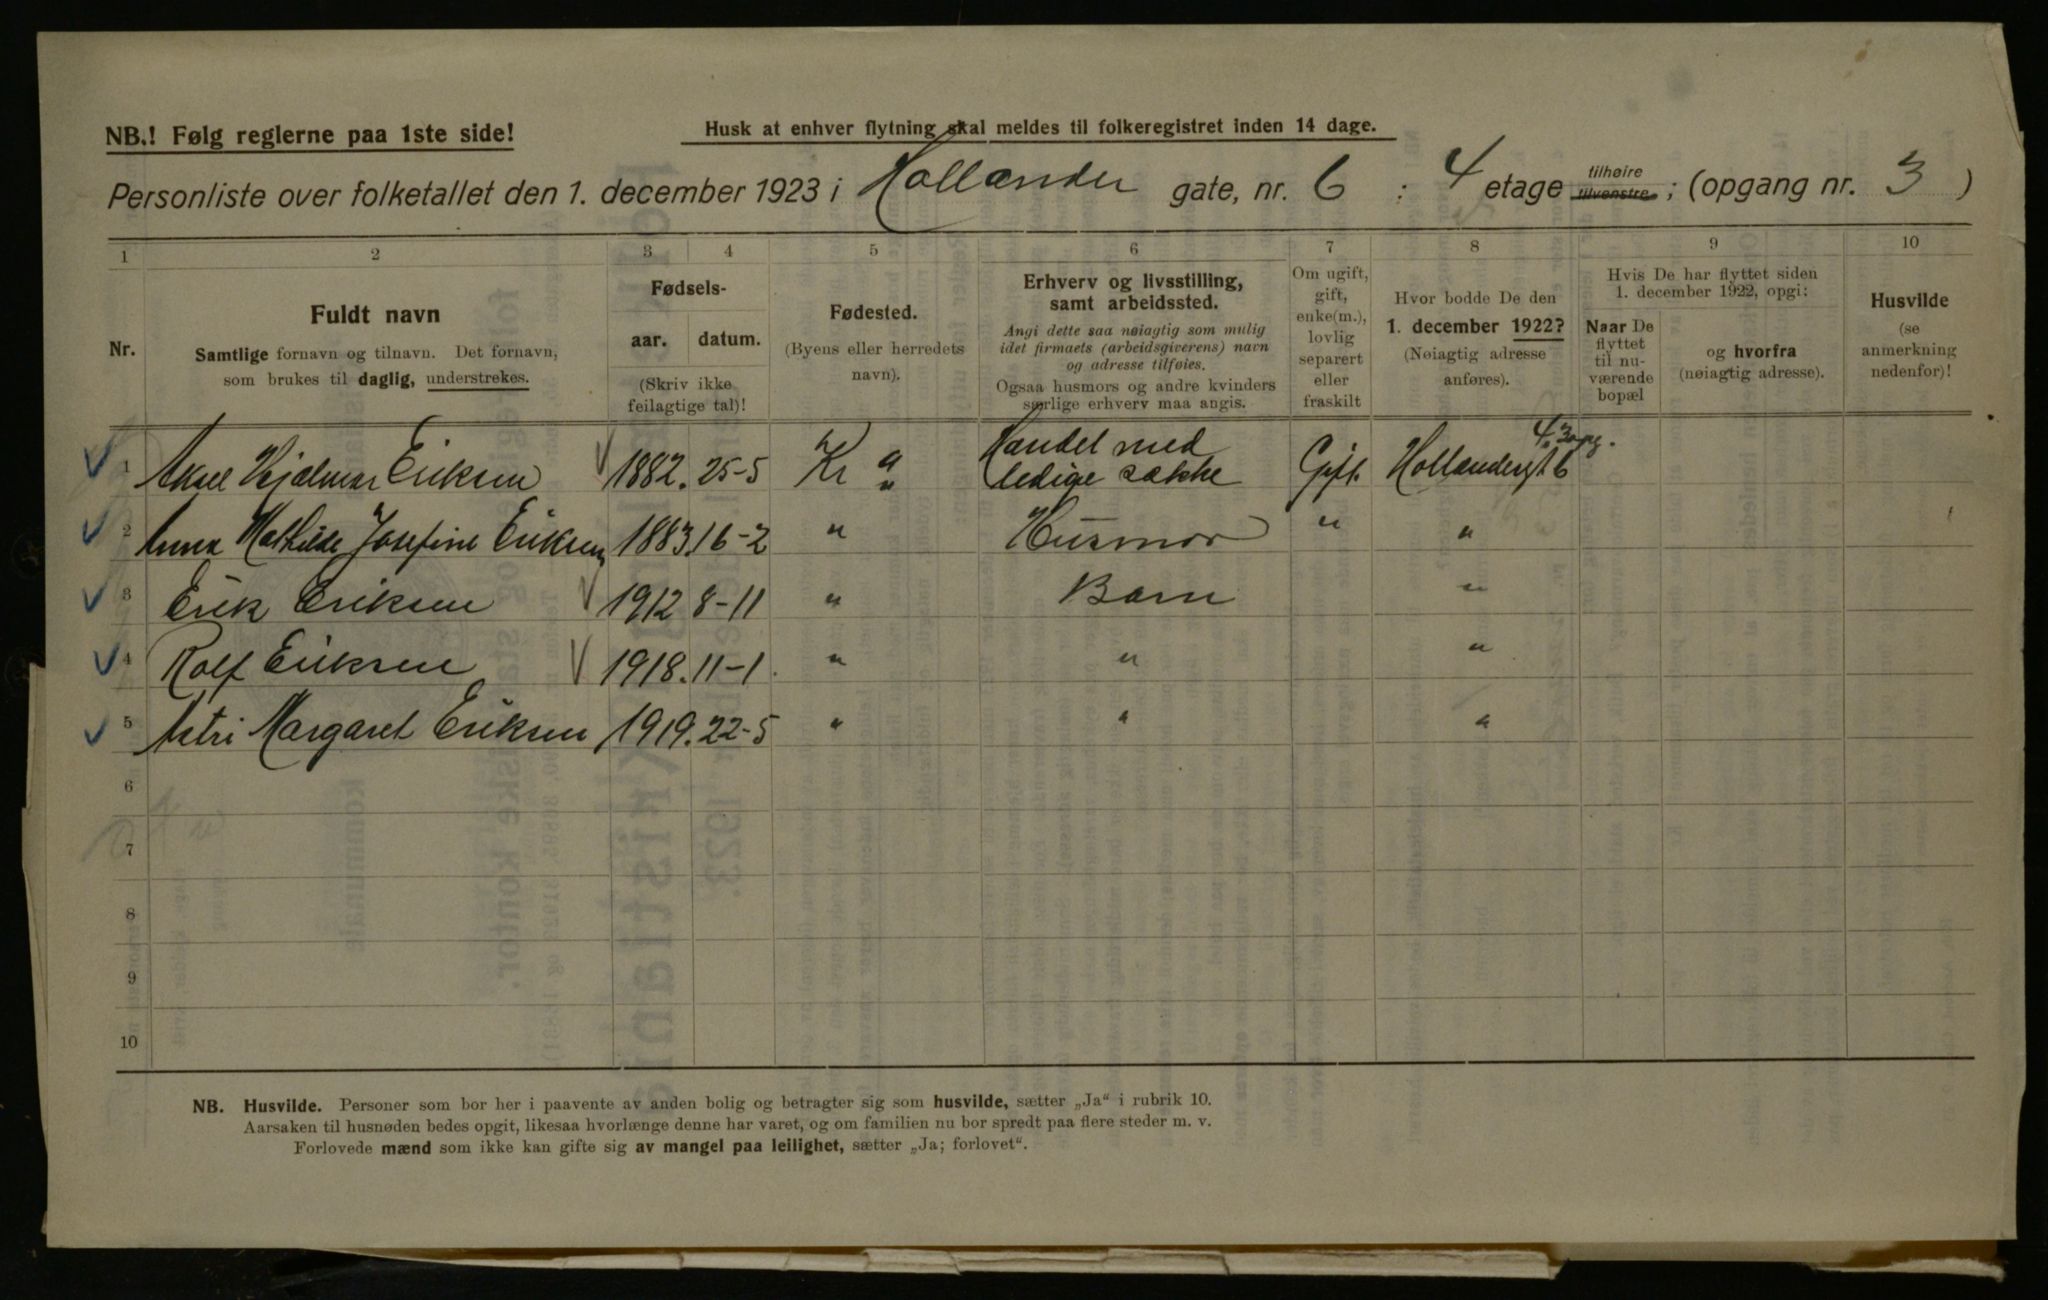 NB.! Følg reglerne paa 1ste side!
Husk at enhver flytning skal meldes til folkeregistret inden 14 dage.
Personliste over folketallet den 1. december 1923 i Hollænder gate, nr. 6 : 4 etage tilhøire tilvenstre ; (opgang nr. 3 )
1 2 3 4 5 6 7 8 9 10
Nr.
Fuldt navn
Samtlige fornavn og tilnavn. Det fornavn,
som brukes til daglig, understrekes.
Fødsels-
aar. datum.
(Skriv ikke
feilagtige tal)!
Fødested.
(Byens eller herredets
navn).
Erhverv og livsstilling,
samt arbeidssted.
Angi dette saa nøiagtig som mulig
idet firmaets (arbeidsgiverens) navn
og adresse tilføies.
Ogsaa husmors og andre kvinders
særlige erhverv maa angis.
Om ugift,
gift,
enke(m.),
lovlig
separert
eller
fraskilt
Hvor bodde De den
1. december 1922?
(Nøiagtig adresse
anføres).
Hvis De har flyttet siden
1. december 1922, opgi:
Naar De
flyttet
til nu-
værende
bopæl
og hvorfra
(nøiagtig adresse).
Husvilde
(se
anmerkning
nedenfor)!
1 Aksel Hjalmar Eriksen 1882. 25-5 Kr a Handel med ledige sække Gift. Hollændergt 6 4. 3 opg.
2 Anna Mathilde Josefine Eriksen 1883. 16-2 " Husmor " "
3 Erik Eriksen 1912 8-11 " Barn "
4 Rolf Eriksen 1918. 11-1. " " "
5 Astri Margaret Eriksen 1919. 22-5 " " "
6
7
8
9
10
NB. Husvilde. Personer som bor her i paavente av anden bolig og betragter sig som husvilde, sætter „Ja" i rubrik 10.
Aarsaken til husnøden bedes opgit, likesaa hvorlænge denne har varet, og om familien nu bor spredt paa flere steder m. v.
Forlovede mænd som ikke kan gifte sig av mangel paa leilighet, sætter „Ja; forlovet".